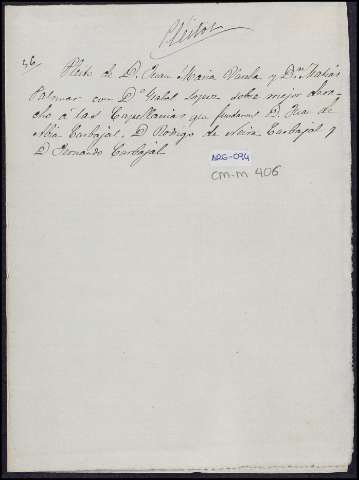 Pleitos
36
Pleito de D. Juan Maria Varela y D.n Matias
Palmar con D.a Isabel Lopez sobre mejor dere-
cho á las Capellanias que fundaron D. Fca. de
Neira Carbajal, D. Rodrigo de Neira Carbajal y
D. Fernando Carbajal
ARG-094
CM-M 406